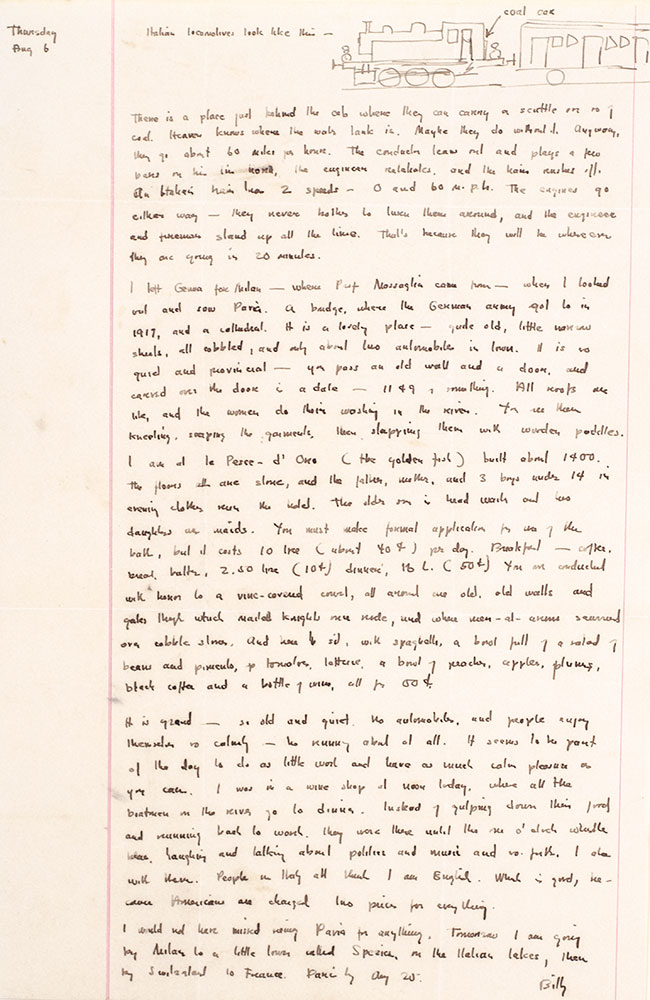 Thursday
Aug 6
Italian locomotives look like this —
coal car
There is a place just behind the cab where they can carry a scuttle or so of
coal. Heaven knows where the water tank is. Maybe they do without. Anyway,
they go about 60 miles per hour. The conductor leans out and plays a few
bars on his tin horn, the engineer and the train rushes off.
An Italian train has 2 speeds — 0 and 60 m.p.h. The engines go
either way — they never bother to turn them around, and the engineer
and fireman stand up all the time. That's because they will be wherever
they are going in 20 minutes.
I left Genoa for Milan — where Prof Mossaglia came from — when I looked
out and saw Pavia. A bridge, where the German army got to in
1917, and a cathedral. It is a lovely place — quite old, little narrow
streets, all cobbled, and only about two automobiles in town. It is so
quiet and provincial — you pass an old wall and a door, and
carved over the door is a date — 1149 or something. All roofs are
tile, and the women do their washing in the river. You see them
kneeling, soaping the garments, then slapping them with wooden paddles.
I am at le Pesce-d'Oro (the golden fish) built about 1400.
The floors are stone, and the father, mother, and 3 boys under 14 in
evening clothes run the hotel. The older son is head waiter and two
daughters are maids. You must make formal application for use of the
bath, but it costs 10 lire (about 40¢) per day. Breakfast — coffee,
bread, butter, 2.50 lire (10¢) dinner, 13 L. (50¢) You are conducted
with honor to a vine-covered court, all around are old, old walls and
gates through which mailed knights once rode, and where men-at-arms
over cobble stones. And here to sit, with spaghetti, a bowl full of a salad of
beans and pimento, tomatoes, lettuce, a bowl of peaches, apples, plums,
black coffee and a bottle of wine, all for 60¢.
It is grand — so old and quiet. No automobiles, and people enjoy
themselves so calmly — no running about at all. It seems to be part
of the day to do as little work and have as much calm pleasure as
you can. I was in a wine shop at noon today, where all the
boatmen on the river go to dinner. Instead of gulping down their food
and running back to work, they were there until the one o'clock whistle
blew, laughing and talking about politics and music and so forth. I ate
with them. People in Italy all think I am English. Which is good, be-
cause Americans are charged two prices for everything.
I would not have missed seeing Pavia for anything. Tomorrow I am going
by Milan to a little town called on the Italian lakes, then
by Switzerland to France. Paris by Aug 25.
Billy